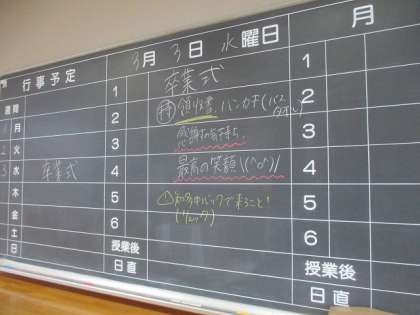 行事予定
3月3日 水曜日
月
週間
1 月
2 火
3 水 卒業式
木
金
土
日
1 卒業式
2 持 領収書、ハンカチ(バスタオル)
3 感謝の気持ち、
4 最高の笑顔\(^o^)/
5 ① 知多中バックで来ること!
(リュック)
6
授業後
日直
1
2
3
4
5
6
授業後
日直